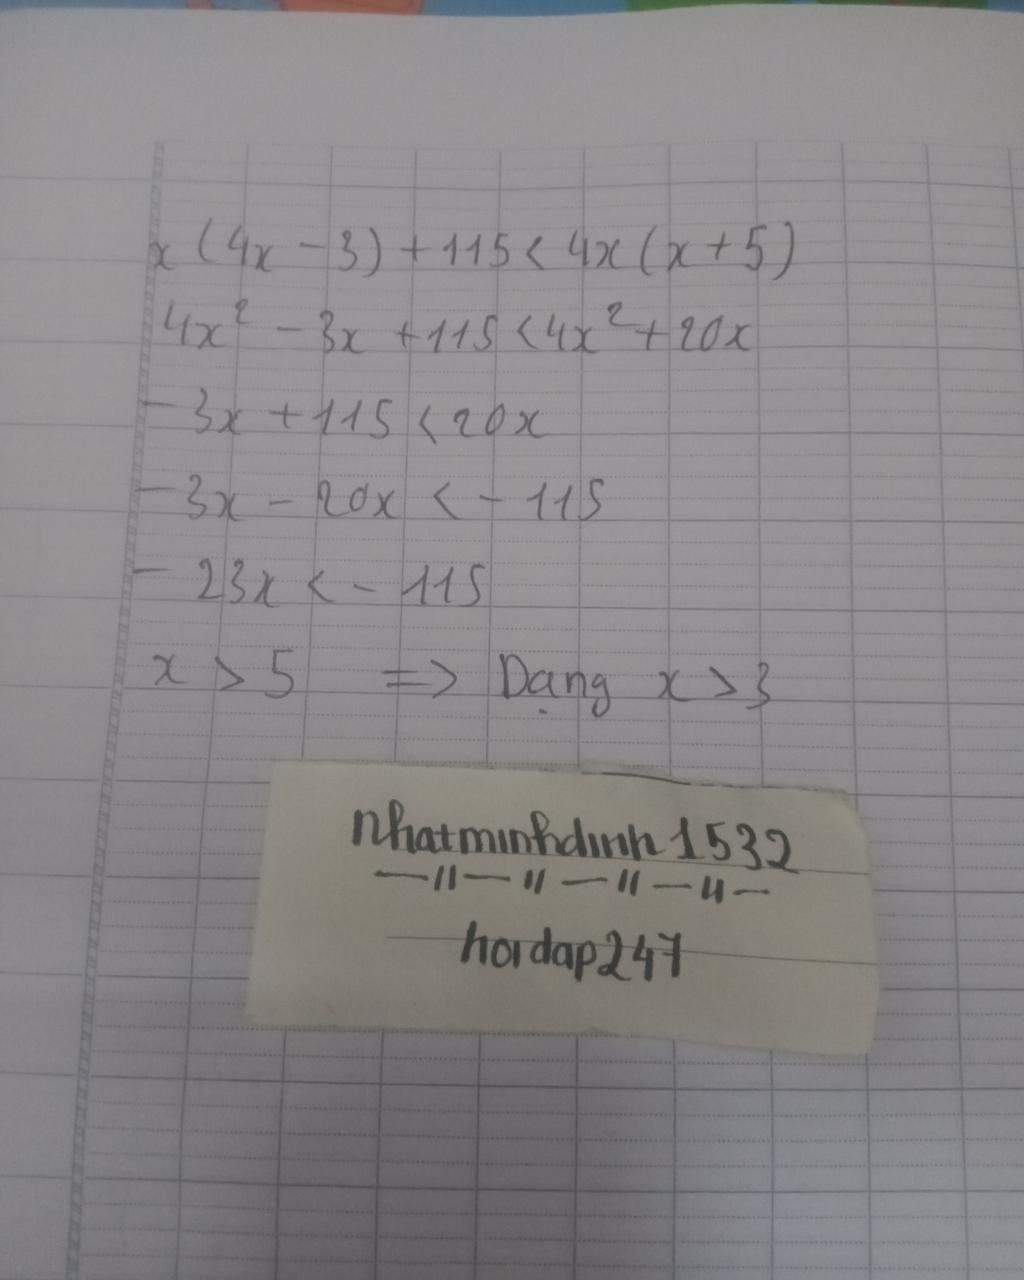 x(4x-3)+115<4x(x+5)
4x²-3x+115<4x²+20x
-3x+115<20x
-3x-20x<-115
-23x<-115
x>5 => Dạng x>3
nhatminhdinh1532
hoidap247